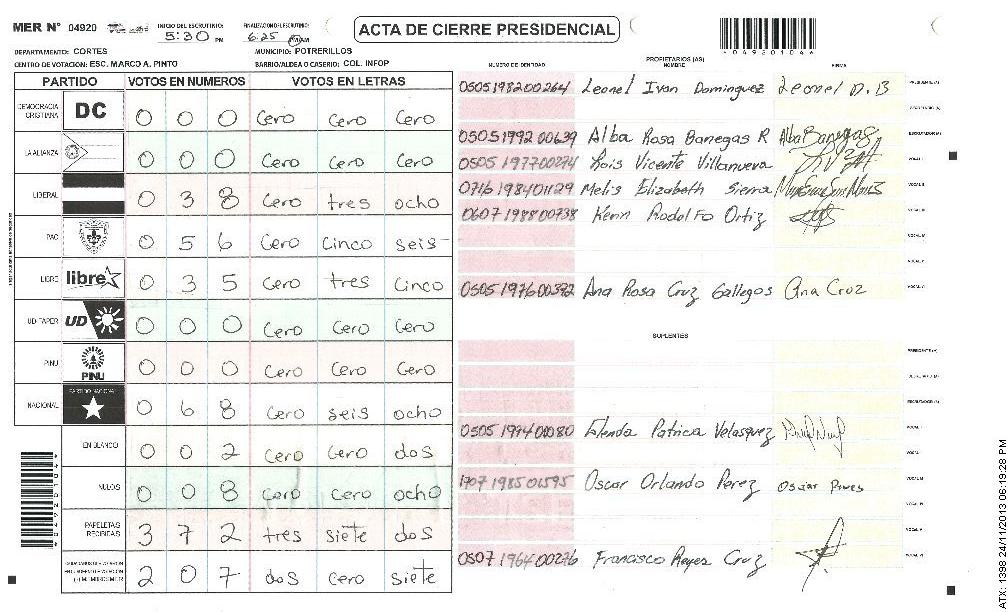 MER N° 04920
INICIO DEL ESCRUTINIO:
5:30 PM
FINALIZACION ESCRUTINIO:
6:25
ACTA DE CIERRE PRESIDENCIAL
DEPARTAMENTO: CORTES
MUNICIPIO: POTRERILLOS
CENTRO DE VOTACION: ESC. MARCO A. PINTO
BARRIO/ALDEA O CASERIO: COL. INFOP
PARTIDO VOTOS EN NUMEROS VOTOS EN LETRAS
DEMOCRACIA CRISTIANA DC 0 0 0 Cero Cero Cero
LA ALIANZA 0 0 0 Cero Cero Cero
LIBERAL 0 3 8 Cero tres ocho
PAC 0 5 6 Cero Cinco seis
LIBRE libre 0 3 5 Cero tres Cinco
UD-FAPER UD 0 0 0 Cero Cero Cero
PINU PINU 0 0 0 Cero Cero Cero
NACIONAL PARTIDO NACIONAL 0 6 8 Cero seis ocho
EN BLANCO 0 0 2 Cero Cero dos
NULOS 0 0 8 Cero Cero ocho
PAPELETAS RECIBIDAS 3 7 2 tres siete dos
2 0 7 dos cero siete
NUMERO DE IDENTIDAD
PROPIETARIOS (AS)
NOMBRE
FIRMA
0505198200264 Leonel Ivan Dominguez Leonel D. B
PRESIDENTE (A)
SECRETARIO (A)
0505199200639 Alba Rosa Banegas R Alba Banegas
ESCRUTADOR (A)
0505197700274 Rois Vicente Villanueva
VOCAL I
0716198401129 Melis Elizabeth Sierra
VOCAL II
0607198800738 Kenn Rodolfo Ortiz
VOCAL III
VOCAL IV
VOCAL V
0505197600392 Ana Rosa Cruz Gallegos Ana Cruz
VOCAL VI
SUPLENTES
PRESIDENTE (A)
SECRETARIO (A)
ESCRUTADOR (A)
Patrica Velasquez
VOCAL I
VOCAL II
1707198501595 Oscar Orlando Perez
VOCAL III
VOCAL IV
VOCAL V
0507196400276 Francisco Reyes Cruz
VOCAL VI
ATX: 1398 24/11/2013 06:19:28 PM